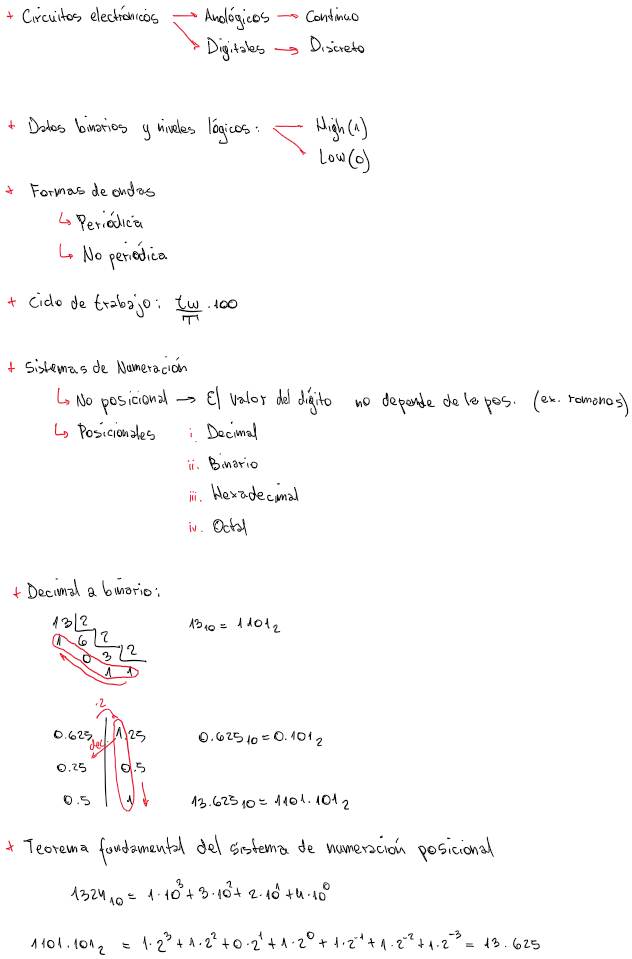 + Circuitos electrónicos → Analógicos → Continuo
→ Digitales → Discreto
+ Datos binarios y niveles lógicos: High (1)
Low (0)
+ Formas de ondas
↳ Periódica
↳ No periódica
+ Ciclo de trabajo: tw/T · 100
+ Sistemas de Numeración
↳ No posicional → El valor del dígito no depende de la pos. (ex. romanos)
↳ Posicionales i. Decimal
ii. Binario
iii. Hexadecimal
iv. Octal
+ Decimal a binario:
13 | 2
1 6 | 2 13₁₀ = 1101₂
0 3 | 2
1 1
·2
0.625 | 1.25 0.625₁₀ = 0.101₂
dec.
0.25 | 0.5
0.5 | 1 13.625₁₀ = 1101.101₂
+ Teorema fundamental del sistema de numeración posicional
1324₁₀ = 1·10³ + 3·10² + 2·10¹ + 4·10⁰
1101.101₂ = 1·2³ + 1·2² + 0·2¹ + 1·2⁰ + 1·2⁻¹ + 1·2⁻² + 1·2⁻³ = 13.625